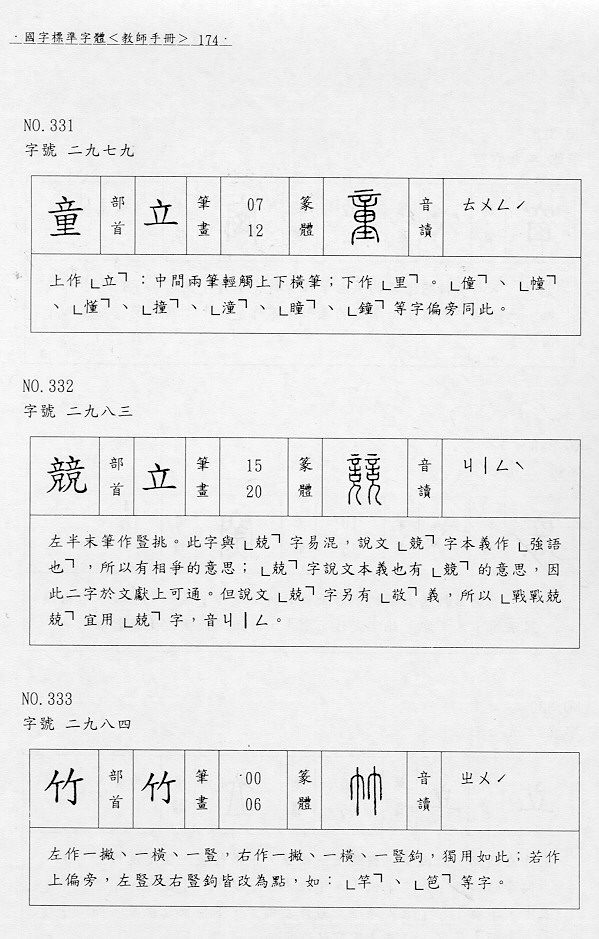 ·國字標準字體<教師手冊> 174·
NO.331
字號 二九七九
童 部首 立 筆畫 07 12 篆體 童 音讀 ㄊㄨㄥˊ
上作「立」:中間兩筆輕觸上下橫筆;下作「里」。「僮」、「幢」
、「憧」、「撞」、「潼」、「瞳」、「鐘」等字偏旁同此。
NO.332
字號 二九八三
競 部首 立 筆畫 15 20 篆體 競 音讀 ㄐㄧㄥˋ
左半末筆作豎挑。此字與「兢」字易混,說文「競」字本義作「強語
也」,所以有相爭的意思;「兢」字說文本義也有「競」的意思,因
此二字於文獻上可通。但說文「兢」字另有「敬」義,所以「戰戰兢
兢」宜用「兢」字,音ㄐㄧㄥ。
NO.333
字號 二九八四
竹 部首 竹 筆畫 00 06 篆體 竹 音讀 ㄓㄨˊ
左作一撇、一橫、一豎,右作一撇、一橫、一豎鉤,獨用如此;若作
上偏旁,左豎及右豎鉤皆改為點,如:「竿」、「笆」等字。